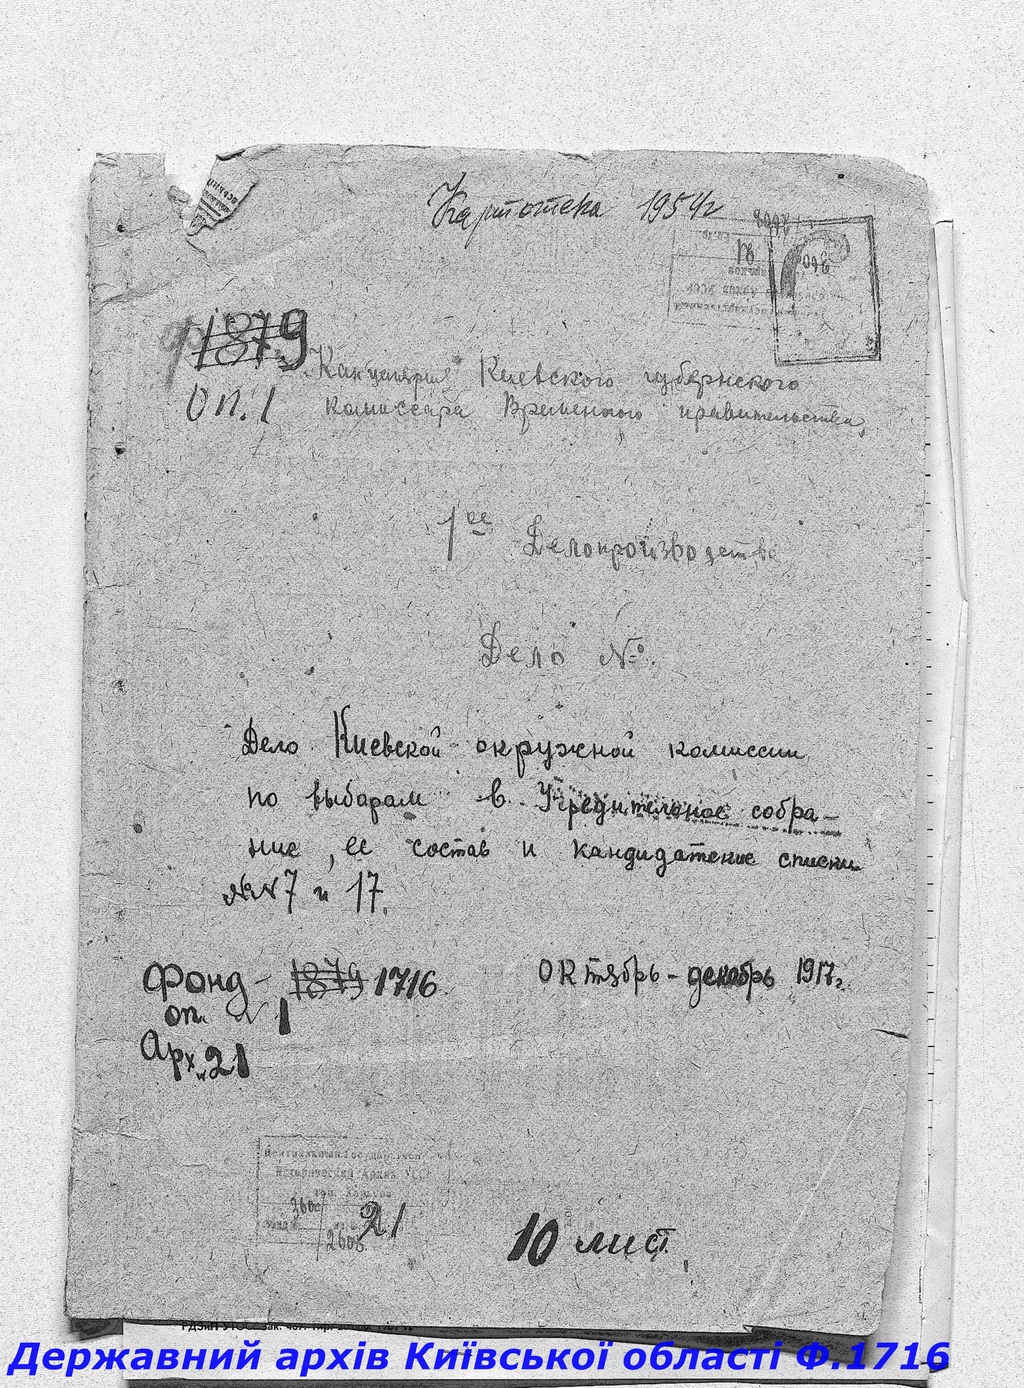 Картотека 1954г
ф 1879
Оп. 1
Канцелярия Киевского губернского
комиссара Временного правительства,
1ое Делопроизводство
Дело №
Дело Киевской окружной комиссии
по выборам в Учредительное собра-
ние, ее состав и кандидатские списки
№№ 7 и 17.
Фонд - 1879 1716
октябрь - декабрь 1917г.
оп. № 1
Арх № 21
Центральный Государствен
Исторический Архив УССР
гор. Харьков
3600/
2608
21
10 лист.
Державний архів Київської області Ф.1716